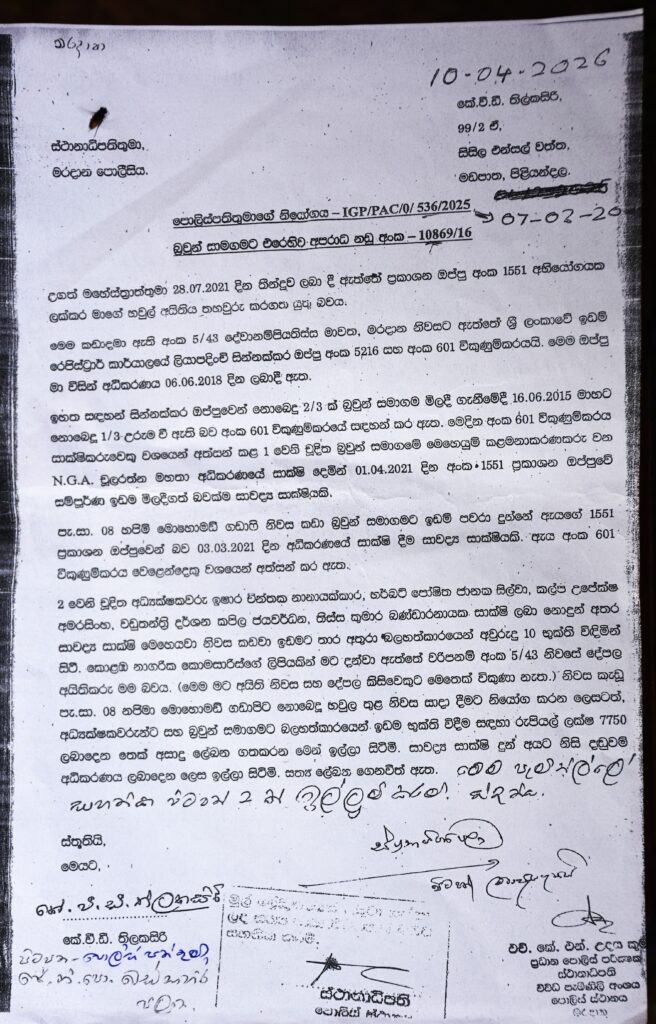 මරදාන
10-04-2026
කේ.වී.ඩී. තිලකසිරි,
99/2 ඒ,
සිසිල එන්සල් වත්ත,
මඩපාත, පිළියන්දල.
ස්ථානාධිපතිතුමා,
මරදාන පොලීසිය.
07-03-20
පොලිස්පතිතුමාගේ නියෝගය – IGP/PAC/0/ 536/2025
බ්‍රවුන් සාමගමට එරෙහිව අපරාධ නඩු අංක – 10869/16
උගත් මහේස්ත්‍රාත්තුමා 28.07.2021 දින තීන්දුව ලබා දී ඇත්තේ ප්‍රකාශන ඔප්පු අංක 1551 අභියෝගයක
ලක්කර මාගේ හවුල් අයිතිය තහවුරු කරගත යුතු බවය.
මෙම කඩාදමා ඇති අංක 5/43 දේවානම්පියතිස්ස මාවත, මරදාන නිවසට ඇත්තේ ශ්‍රී ලංකාවේ ඉඩම්
රෙජිස්ට්‍රාර් කාර්යාලයේ ලියාපදිංචි සින්නක්කර ඔප්පු අංක 5216 සහ අංක 601 විකුණුම්කරයයි. මෙම ඔප්පු
මා විසින් අධිකරණය 06.06.2018 දින ලබාදී ඇත.
ඉහත සඳහන් සින්නක්කර ඔප්පුවෙන් නොබෙදූ 2/3 ක් බ්‍රවුන් සමාගම මිලදී ගැනීමේදී 16.06.2015 මාහට
නොබෙදූ 1/3 උරුම වී ඇති බව අංක 601 විකුණුම්කරයේ සඳහන් කර ඇත. මෙදින අංක 601 විකුණුම්කරය
සාක්ෂිකරුවෙකු වශයෙන් අත්සන් කළ 1 වෙනි චූදිත බ්‍රවුන් සමාගමේ මෙහෙයුම් කළමනාකරණකරු වන
N.G.A. චූලරත්න මහතා අධිකරණයේ සාක්ෂි දෙමින් 01.04.2021 දින අංක 1551 ප්‍රකාශන ඔප්පුවේ
සම්පූර්ණ ඉඩම මිලදීගත් බවක්ම සාවද්‍ය සාක්ෂියකි.
පැ.සා. 08 හපිමි මොහොමඩ් ගඩාෆි නිවස කඩා බ්‍රවුන් සමාගමට ඉඩම් පවරා දුන්නේ ඇයගේ 1551
ප්‍රකාශන ඔප්පුවෙන් බව 03.03.2021 දින අධිකරණයේ සාක්ෂි දීම සාවද්‍ය සාක්ෂියකි. ඇය අංක 601
විකුණුම්කරය වෙළෙන්දෙකු වශයෙන් අත්සන් කර ඇත.
2 වෙනි චූදිත අධ්‍යක්ෂකවරු ඉෂාර චින්තක නානායක්කාර, හර්බට් පෝෂිත ජානක සිල්වා, කල්ප උපේක්ෂ
අමරසිංහ, වඩුතන්ත්‍රි දර්ශන කපිල ජයවර්ධන, තිස්ස කුමාර බණ්ඩාරනායක සාක්ෂි ලබා නොදුන් අතර
සාවද්‍ය සාක්ෂි මෙහෙයවා නිවස කඩවා ඉඩමට තාර අතුරා බලහත්කාරයෙන් අවුරුදු 10 භුක්ති විඳිමින්
සිටී. කොළඹ නාගරික කොමසාරිස්ගේ ලිපියකින් මට දන්වා ඇත්තේ වරිපනම් අංක 5/43 නිවසේ දේපල
අයිතිකරු මම බවය. (මෙම මට අයිති නිවස සහ දේපල කිසිවෙකුට මෙතෙක් විකුණා නැත.) නිවස කැඩූ
පැ.සා. 08 නපිමා මොහොමඩ් ගඩාපිට නොබෙදූ හවුල තුළ නිවස සාදා දීමට නියෝග කරන ලෙසටත්,
අධ්‍යක්ෂකවරුන්ට සහ බ්‍රවුන් සමාගමට බලහත්කාරයෙන් ඉඩම භුක්ති විඳීම සඳහා රුපියල් ලක්ෂ 7750
ලබාදෙන තෙක් අසාදු ලේඛන ගතකරන මෙන් ඉල්ලා සිටිමි. සාවද්‍ය සාක්ෂි දුන් අයට නිසි දඬුවම්
අධිකරණය ලබාදෙන ලෙස ඉල්ලා සිටිමි. සත්‍ය ලේඛන ගෙනවිත් ඇත. මෙම පැමිණිල්ලේ
සහතික පිටපත් 2 ක් ඉල්ලුම් කරමි.
ස්තූතියි,
මෙයට,
කේ.වී.ඩී. තිලකසිරි
පිටපත – පොලිස්පතිතුමා
ස්ථානාධිපති
පොලිස් ස්ථානය
එච්. කේ. එන්. උදය කුමා
ප්‍රධාන පොලිස් පරීක්ෂක
ස්ථානාධිපති
විවිධ පැමිණිලි අංශය
පොලිස් ස්ථානය
මරදාන